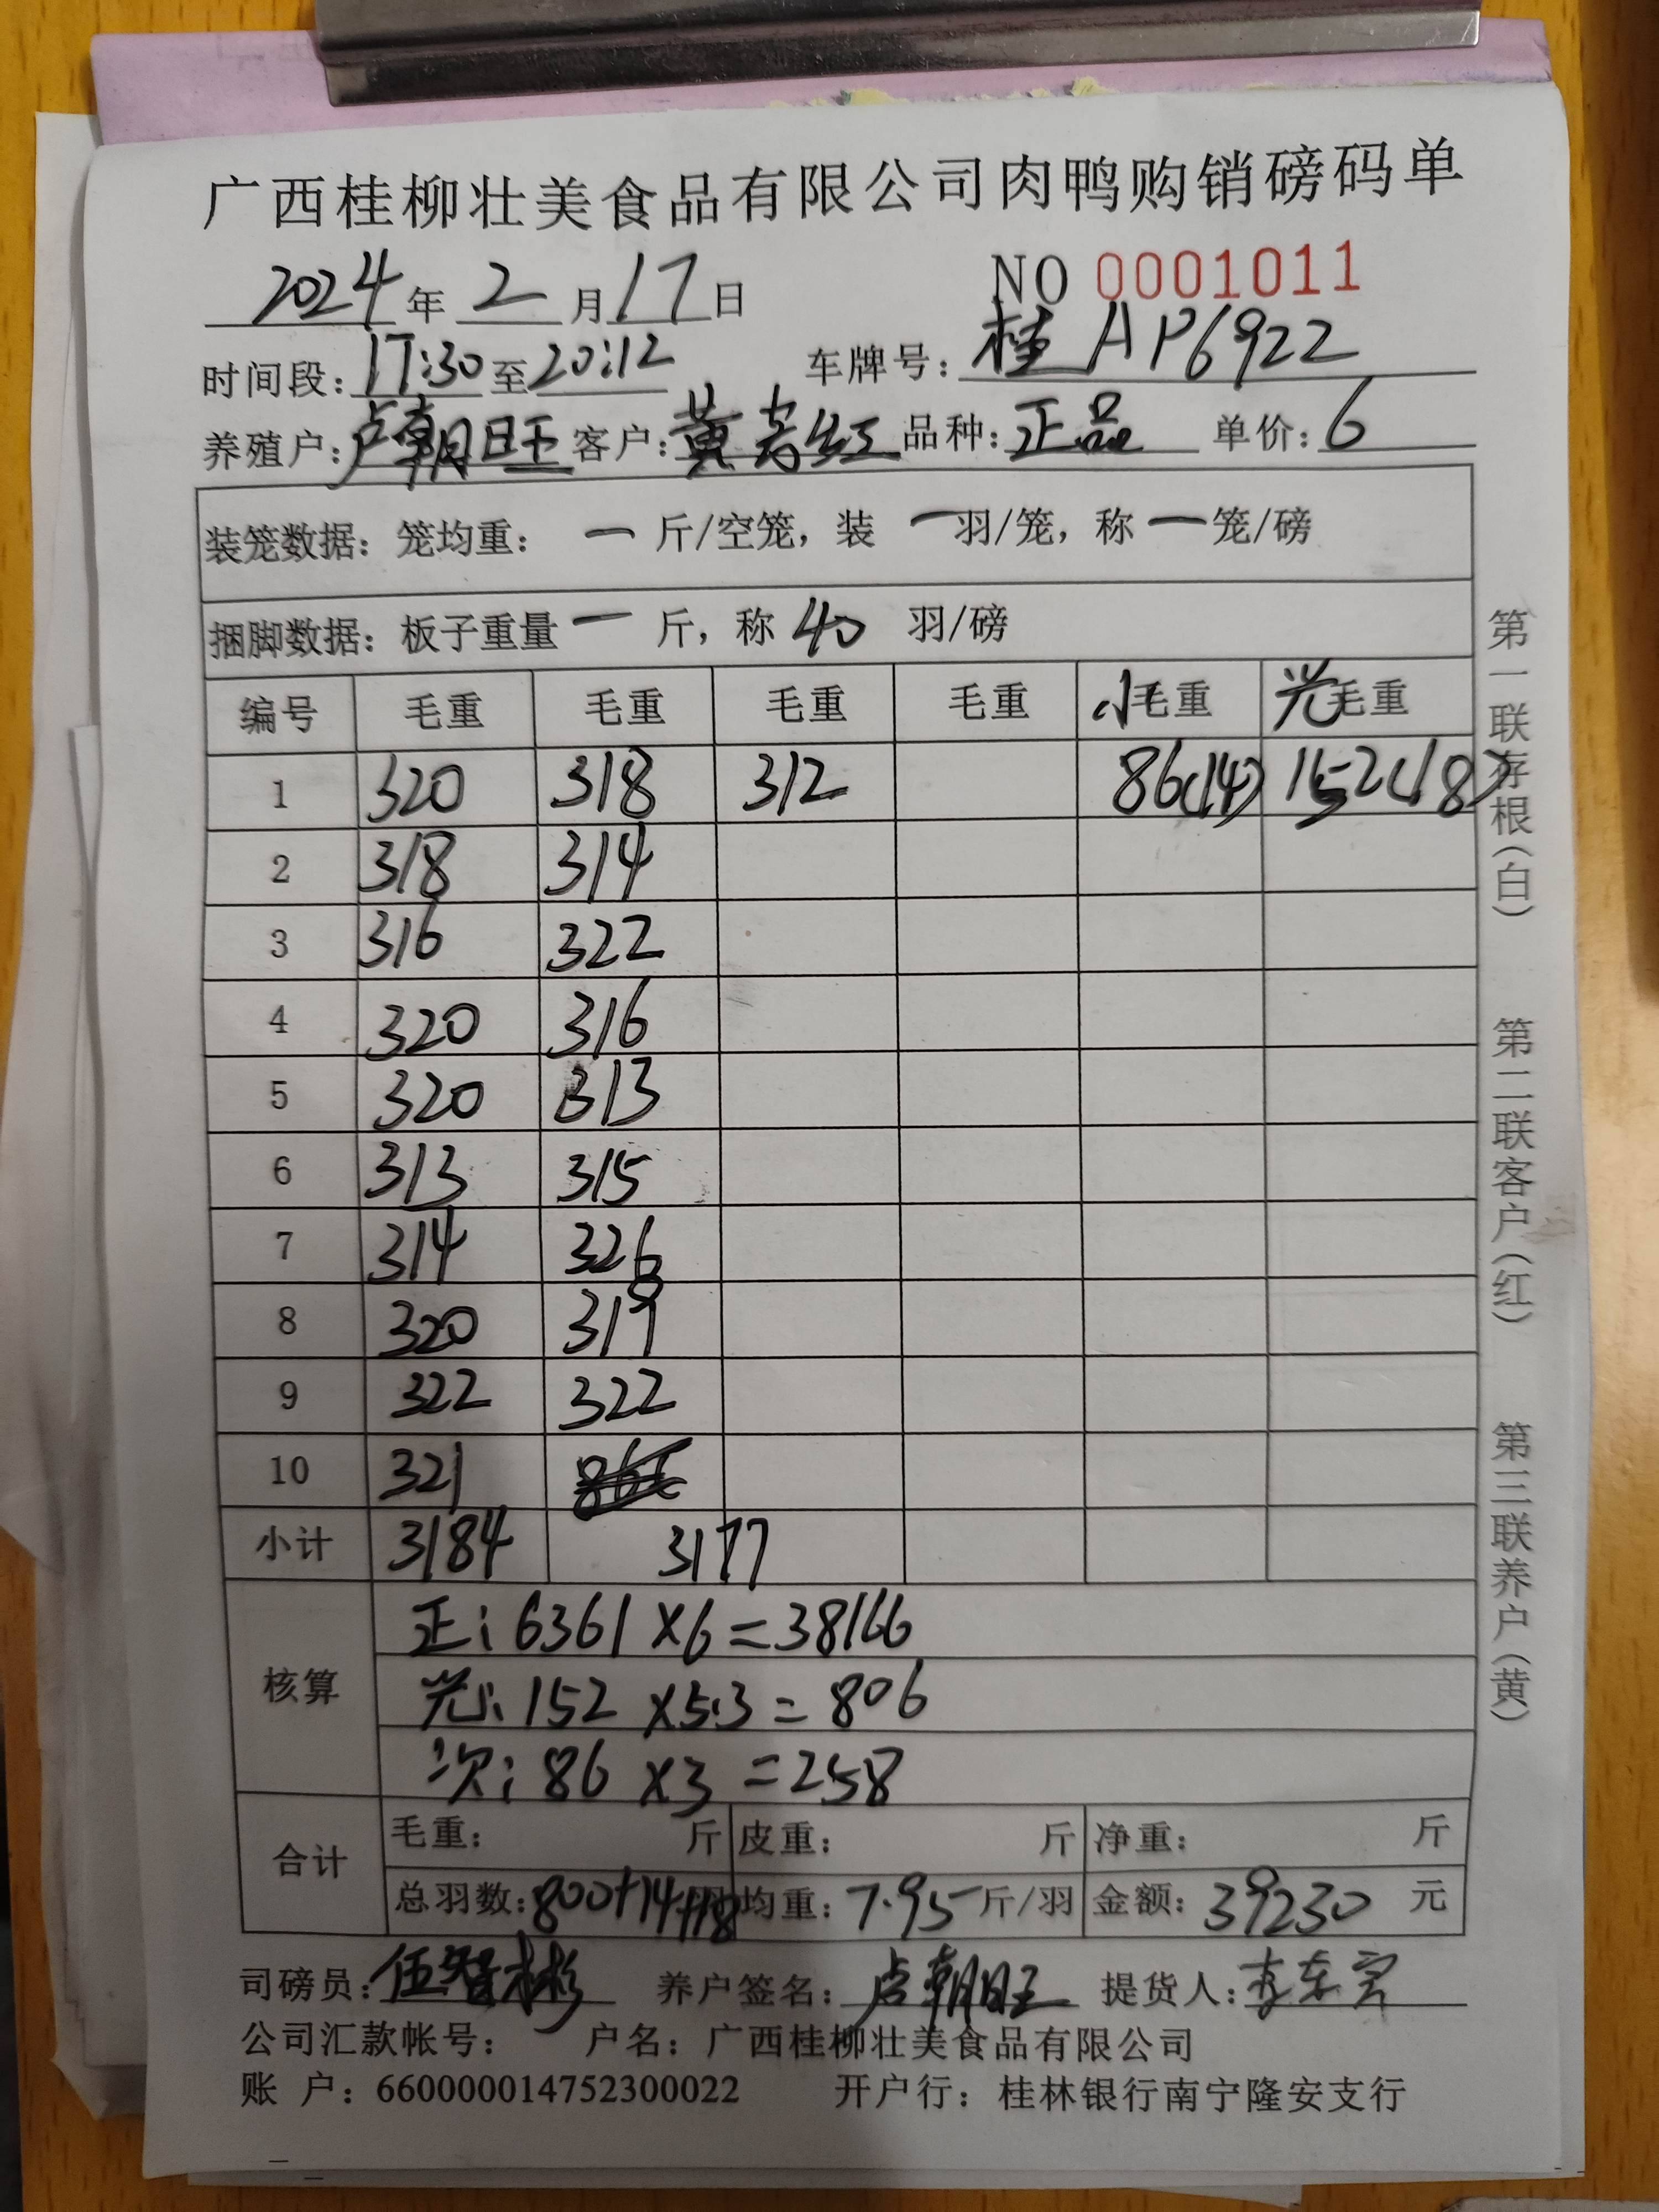 广西桂柳壮美食品有限公司肉鸭购销磅码单
2024年2月17日 NO 0001011
时间段:17:30至20:12 车牌号:桂AP6922
养殖户:卢朝旺 客户:黄红 品种:正品 单价:6
装笼数据:笼均重: 一 斤/空笼,装 一羽/笼,称一笼/磅
捆脚数据:板子重量 一 斤,称 40 羽/磅
编号 毛重 毛重 毛重 毛重 小毛重 光毛重
1 320 318 312 86(14) 152(18)
2 318 314
3 316 322
4 320 316
5 320 313
6 313 315
7 314 326
8 320 319
9 322 322
10 321
小计 3184 3177
核算 正:6361×6=38166
光:152×5.3=806
次:86×3=258
合计 毛重: 斤 皮重: 斤 净重: 斤
总羽数:800+14+18羽 均重:7.95斤/羽 金额:39230元
司磅员:伍智彬 养户签名:卢朝旺 提货人:李东
公司汇款帐号: 户名:广西桂柳壮美食品有限公司
账 户:660000014752300022 开户行:桂林银行南宁隆安支行
第一联存根(白)
第二联客户(红)
第三联养户(黄)